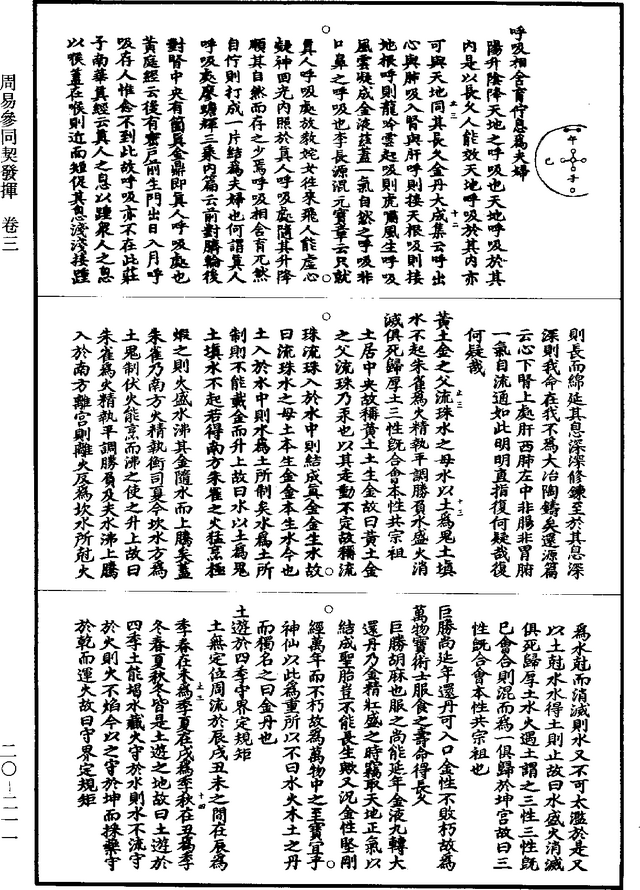 周易參同契發揮 卷三
二〇-二一一
午
子
卯
呼吸相含育佇息為夫婦
陽升陰降天地之呼吸也天地呼吸於其
內是以長久人能效天地呼吸於其內亦
可與天地同其長久金丹大成集云呼出
心與肺吸入腎與肝呼則接天根吸則接
地根呼則龍吟雲起吸則虎嘯風生呼吸
風雲凝成金液蓋一氣自然之呼吸非
口鼻之呼吸也李長源混元寶章云只就
真人呼吸處放教姹女往來飛人能虛心
凝神回光內照於真人呼吸處隨其升降
順其自然而存之少焉呼吸相含育兀然
自佇則打成一片結為夫婦也何謂真人
呼吸處廖蟾輝三乘內篇云前對臍輪後
對腎中央有箇真金鼎即真人呼吸處也
黃庭經云後有密戶前生門出日入月呼
吸存人惟念不到此故呼吸亦不在此莊
子南華真經云真人之息以踵眾人之息
以喉蓋在喉則近而短促其息淺淺接踵
則長而綿延其息深深修鍊至於其息深
深則我命在我不為大冶陶鑄矣還源篇
云心下腎上處肝西肺左中非腸非胃腑
一氣自流通如此明明直指復何疑哉復
何疑哉
黃土金之父流珠水之母水以土為鬼土填
水不起朱雀為火精執平調勝負水盛火消
滅俱死歸厚土三性既合會本性共宗祖
土居中央故稱黃土土生金故曰黃土金
之父流珠乃汞也以其走動不定故稱流
珠流珠入於水中則結成真金金生水故
曰流珠水之母土本生金金本生水今也
土入於水中則水為土所制矣水為土所
制則不能載金而升上故曰水以土為鬼
土填水不起若得南方朱雀之火猛烹極
煅之則火盛水沸其金隨水而上騰矣蓋
朱雀乃南方火精執衡司夏今坎水方為
土鬼制伏火能烹而沸之使之升上故曰
朱雀為火精執平調勝負及夫水沸上騰
入於南方離宮則離火反為坎水所剋火
為水剋而消滅則水又不可太濫於是又
以土剋水水得土則止故曰水盛火消滅
俱死歸厚土水火遇土謂之三性三性既
已會合則混而為一俱歸於坤宮故曰三
性既合會本性共宗祖也
巨勝尚延年還丹可入口金性不敗朽故為
萬物寶術士服食之壽命得長久
巨勝胡麻也服之尚能延年金液九轉大
還丹乃金精壯盛之時竊取天地正氣以
結成聖胎豈不能長生歟又況金性堅剛
經萬年而不朽故為萬物中之至寶宜乎
神仙以此為重所以不曰水火木土之丹
而獨名之曰金丹也
土遊於四季守界定規矩
土無定位周流於辰戌丑未之間在辰為
季春在未為季夏在戌為季秋在丑為季
冬春夏秋冬皆是土遊之地故曰土遊於
四季土能塌水藏火守於水則水不流守
於火則火不焰今以之守於坤而採藥守
於乾而運火故曰守界定規矩